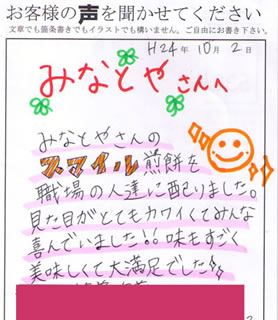 お客様の声を聞かせてください
文章でも箇条書きでもイラストでも構いません。ご自由にお書き下さい。
H24年10月2日
みなとやさんへ
みなとやさんの
スマイル煎餅を
職場の人達に配りました。
見た目がとてもカワイくてみんな
喜んでいました!!味もすごく
美味しくて大満足でした